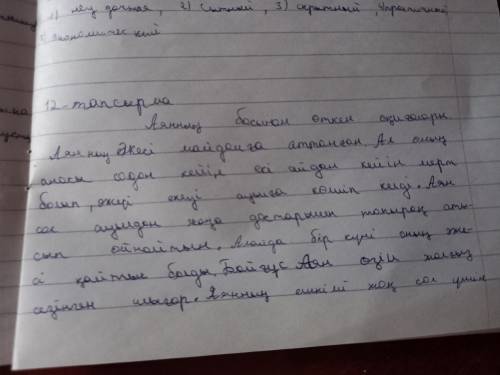 1) неудачная, 2) сытный, 3) скрытный, 4 практичный
экономический
12-тапсырма
Аянның басынан өткен оқиғалары
Аянның Әкесі майданға аттанған. Ал оның
анасы содан кейін екі айдан кейін мерт
болып, әжесі екеуі ауылға көшіп келді. Аян
сол ауылдан жаңа достарымен топырақ аты-
сып ойнайтын. Алайда бір күні оның әже-
сі қайтыс болды. Байғұс Аян өзін жалғыз
сезінген шығар. Аянның ешкімі жоқ сол үшін